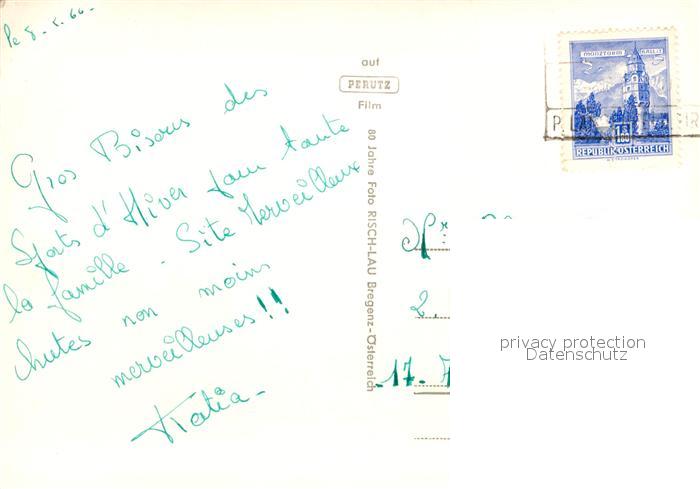 le 8.5.66-
Gros Bisous des
Sports d'Hiver pour toute
la famille - Site Merveilleux
chutes non moins
merveilleuses!!
Katia-
auf
PERUTZ
Film
80 Jahre Foto RISCH-LAU Bregenz-Österreich
MÜNZTURM HALL I.T.
S 1.80
REPUBLIK ÖSTERREICH
2,
17. 
privacy protection
Datenschutz